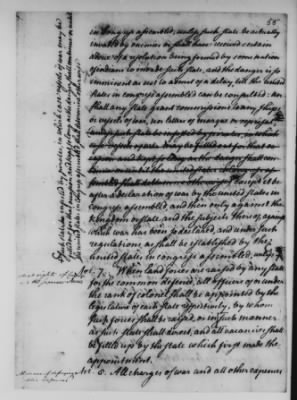 58
in Congress assembled, unless such State be actually
invaded by enemies or shall have received certain
advice of a resolution being formed by some nation
of Indians to invade such State, and the danger is so
imminent as not to admit of a delay till the United
States in Congress assembled can be consulted: nor
shall any State grant commissions to any ships
or vessels of war, nor letters of marque or reprisal,
except it be
after a declaration of war by the United States in
Congress assembled, and then only against the
Kingdom or State and the subjects thereof, against
which war has been so declared, and under such
regulations as shall be established by the
United States in Congress assembled, unless
such State be infested by pirates, in which case vessels of war may be
fitted out for that occasion and kept so long as the danger shall continue or until
the United States in Congress assembled shall determine otherwise.
Art. 7. When land forces are raised by any State
for the common defence, all officers of or under
the rank of colonel shall be appointed by the
legislature of each State respectively by whom
such forces shall be raised, or in such manner
as such State shall direct, and all vacancies shall
be filled up by the State which first made the
appointment.
Art. 8. All charges of war and all other expences